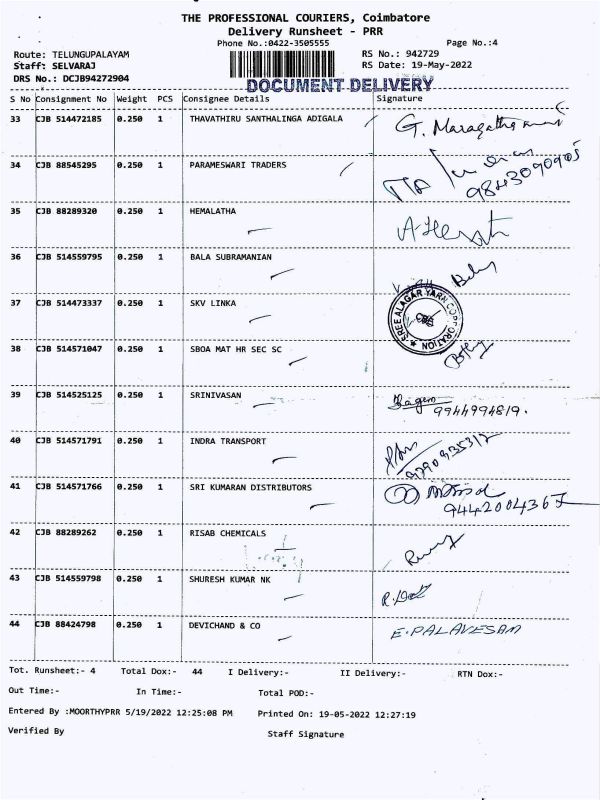 THE PROFESSIONAL COURIERS, Coimbatore
Delivery Runsheet - PRR
Phone No.:0422-3505555 Page No.:4
Route: TELUNGUPALAYAM RS No.: 942729
Staff: SELVARAJ RS Date: 19-May-2022
DRS No.: DCJB94272904
DOCUMENT DELIVERY
S No Consignment No Weight PCS Consignee Details Signature
33 CJB 514472185 0.250 1 THAVATHIRU SANTHALINGA ADIGALA G.
34 CJB 88545295 0.250 1 PARAMESWARI TRADERS
9843090905
35 CJB 88289320 0.250 1 HEMALATHA
36 CJB 514559795 0.250 1 BALA SUBRAMANIAN
37 CJB 514473337 0.250 1 SKV LINKA SREE ALAGAR YARN CORPORATION
38 CJB 514571047 0.250 1 SBOA MAT HR SEC SC
39 CJB 514525125 0.250 1 SRINIVASAN
9944994819.
40 CJB 514571791 0.250 1 INDRA TRANSPORT
41 CJB 514571766 0.250 1 SRI KUMARAN DISTRIBUTORS
9442004367
42 CJB 88289262 0.250 1 RISAB CHEMICALS
43 CJB 514559798 0.250 1 SHURESH KUMAR NK
44 CJB 88424798 0.250 1 DEVICHAND & CO E.PALAVESAM
Tot. Runsheet:- 4 Total Dox:- 44 I Delivery:- II Delivery:- RTN Dox:-
Out Time:- In Time:- Total POD:-
Entered By :MOORTHYPRR 5/19/2022 12:25:08 PM Printed On: 19-05-2022 12:27:19
Verified By Staff Signature